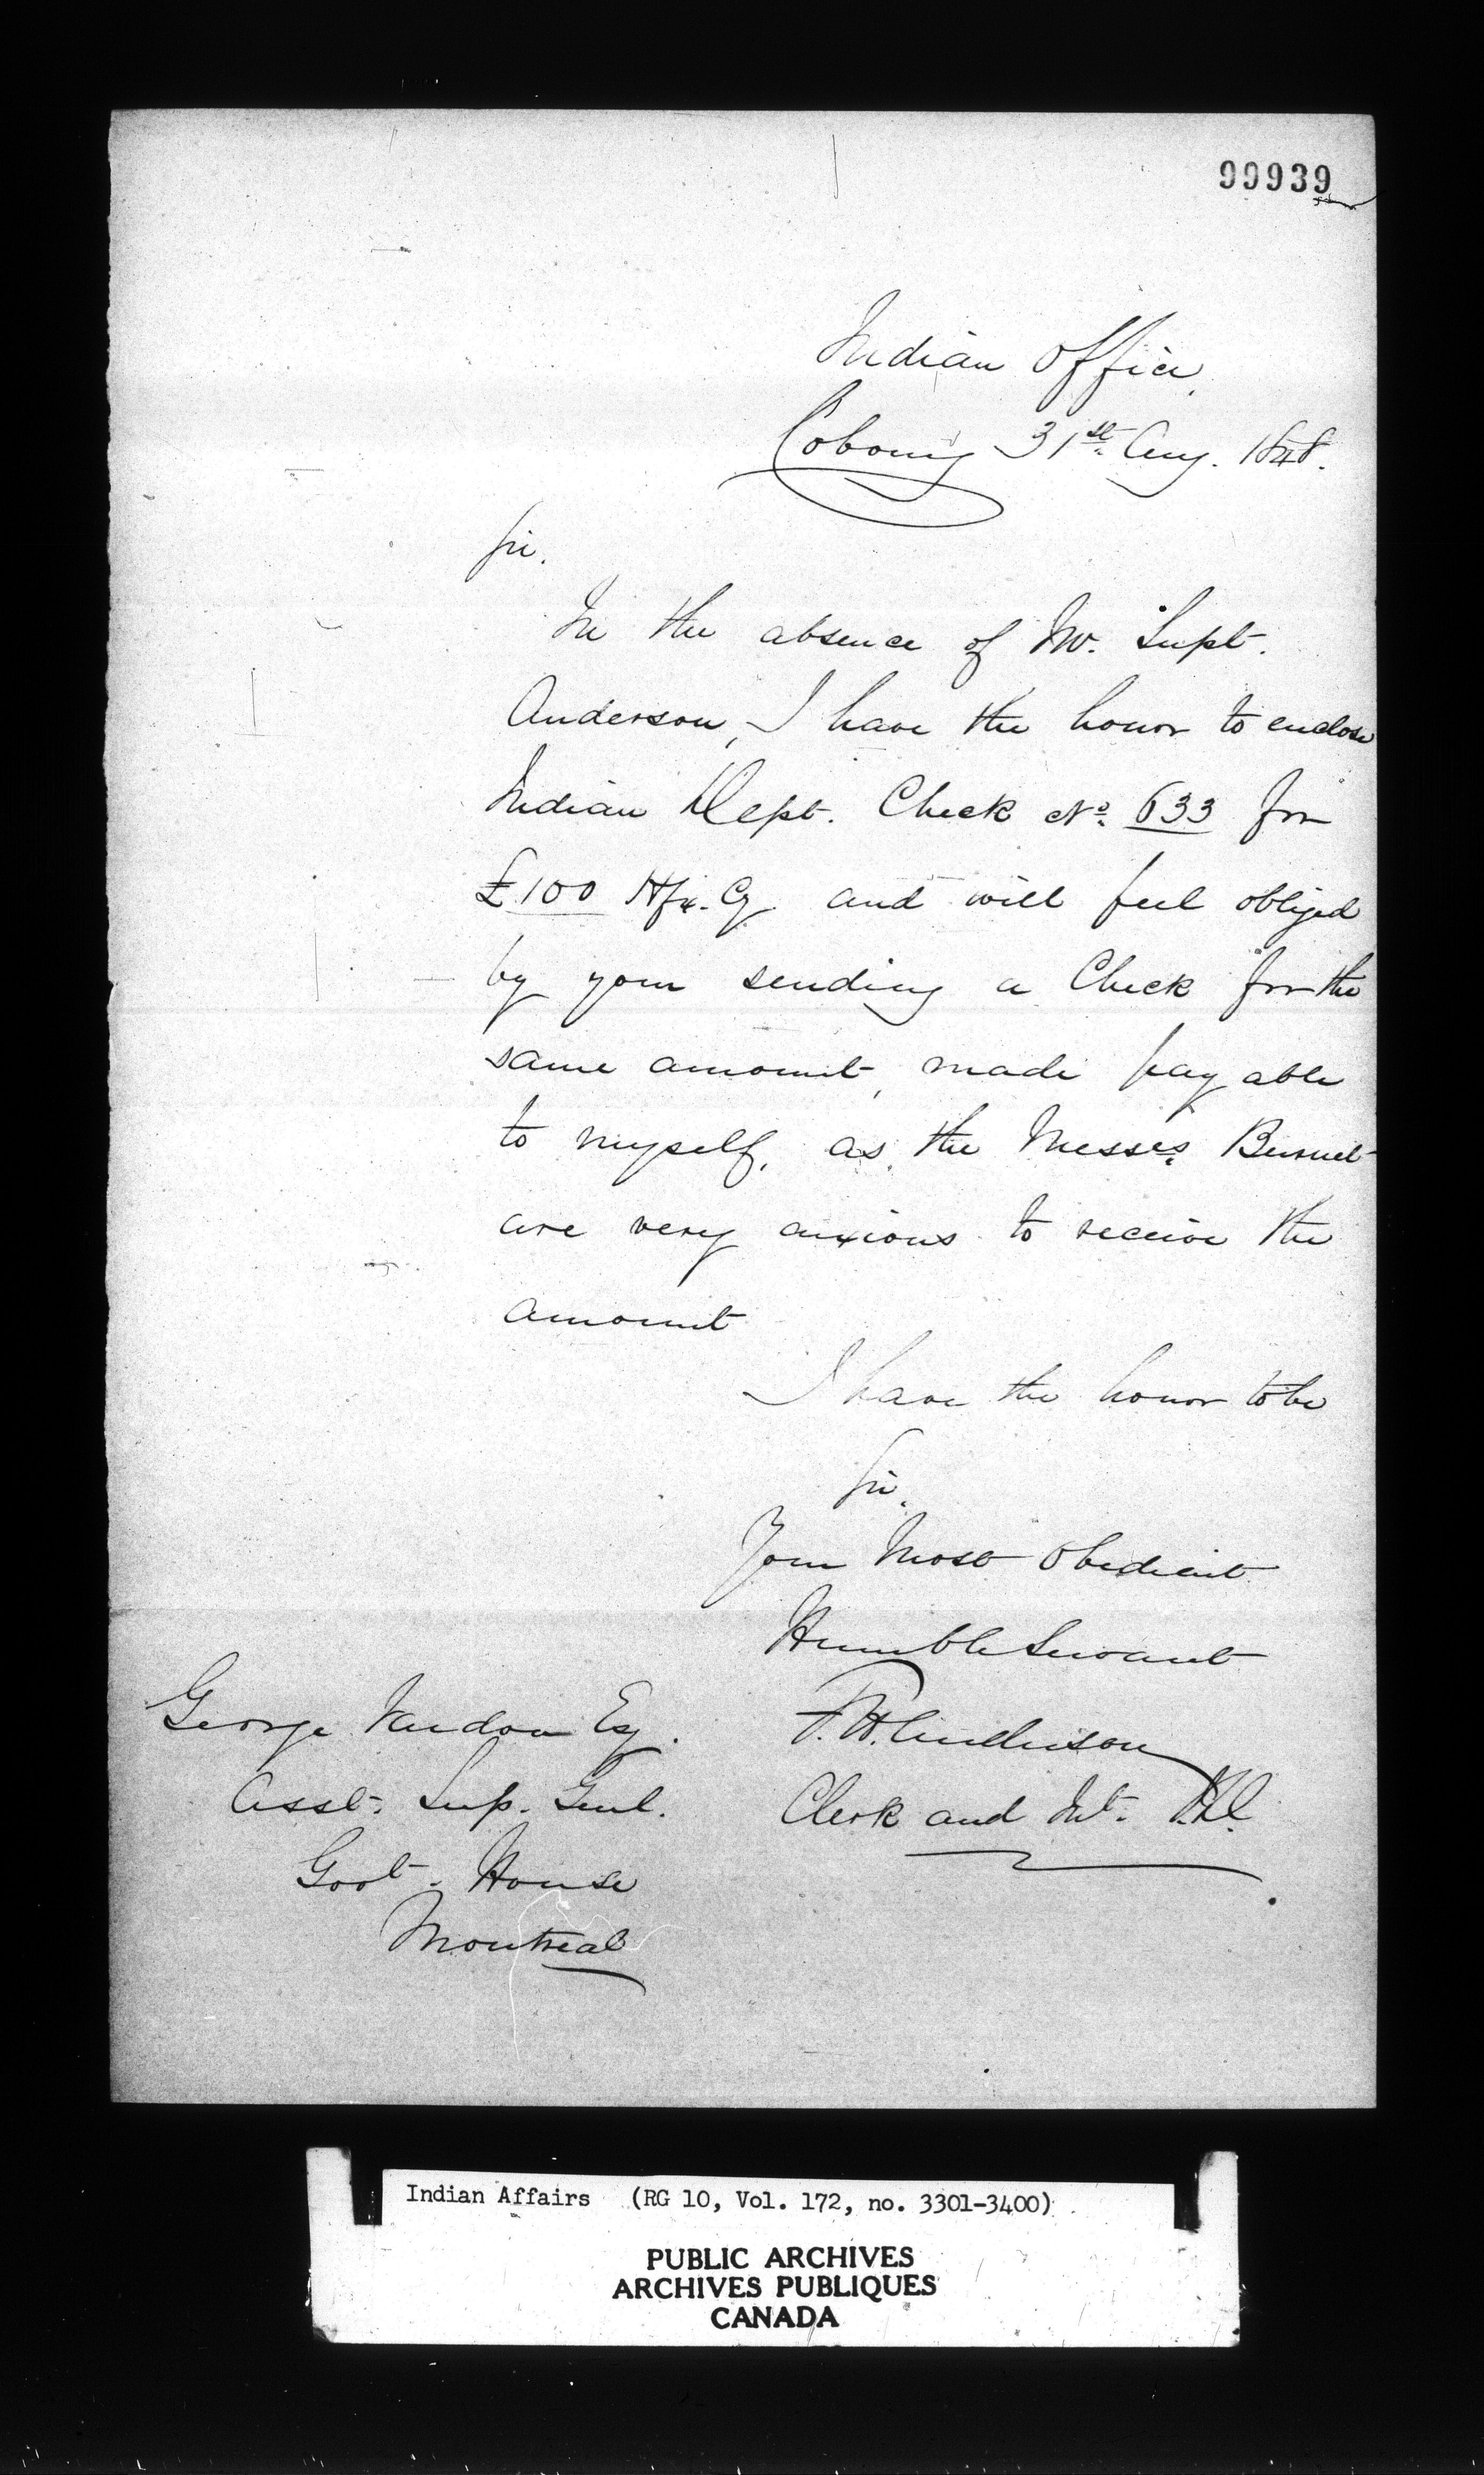 99939
Indian Office
Cobourg 31st Aug. 1848.
Sir.
In the absence of Mr. Supt.
Anderson, I have the honor to enclose
Indian Dept. Check No. 633 for
£100 Hfx. Cy and will feel obliged
by your sending a Check for the
same amount, made payable
to myself, as the Messrs
are very anxious to receive the
amount
I have the honor to be
Sir.
Your Most Obedient
Humble Servant
George Vardon Esq. F. H. Anderson
Asst. Sup. Genl. Clerk and Int. I.D.
Govt. House
Montreal
Indian Affairs (RG 10, Vol. 172, no. 3301-3400)
PUBLIC ARCHIVES
ARCHIVES PUBLIQUES
CANADA